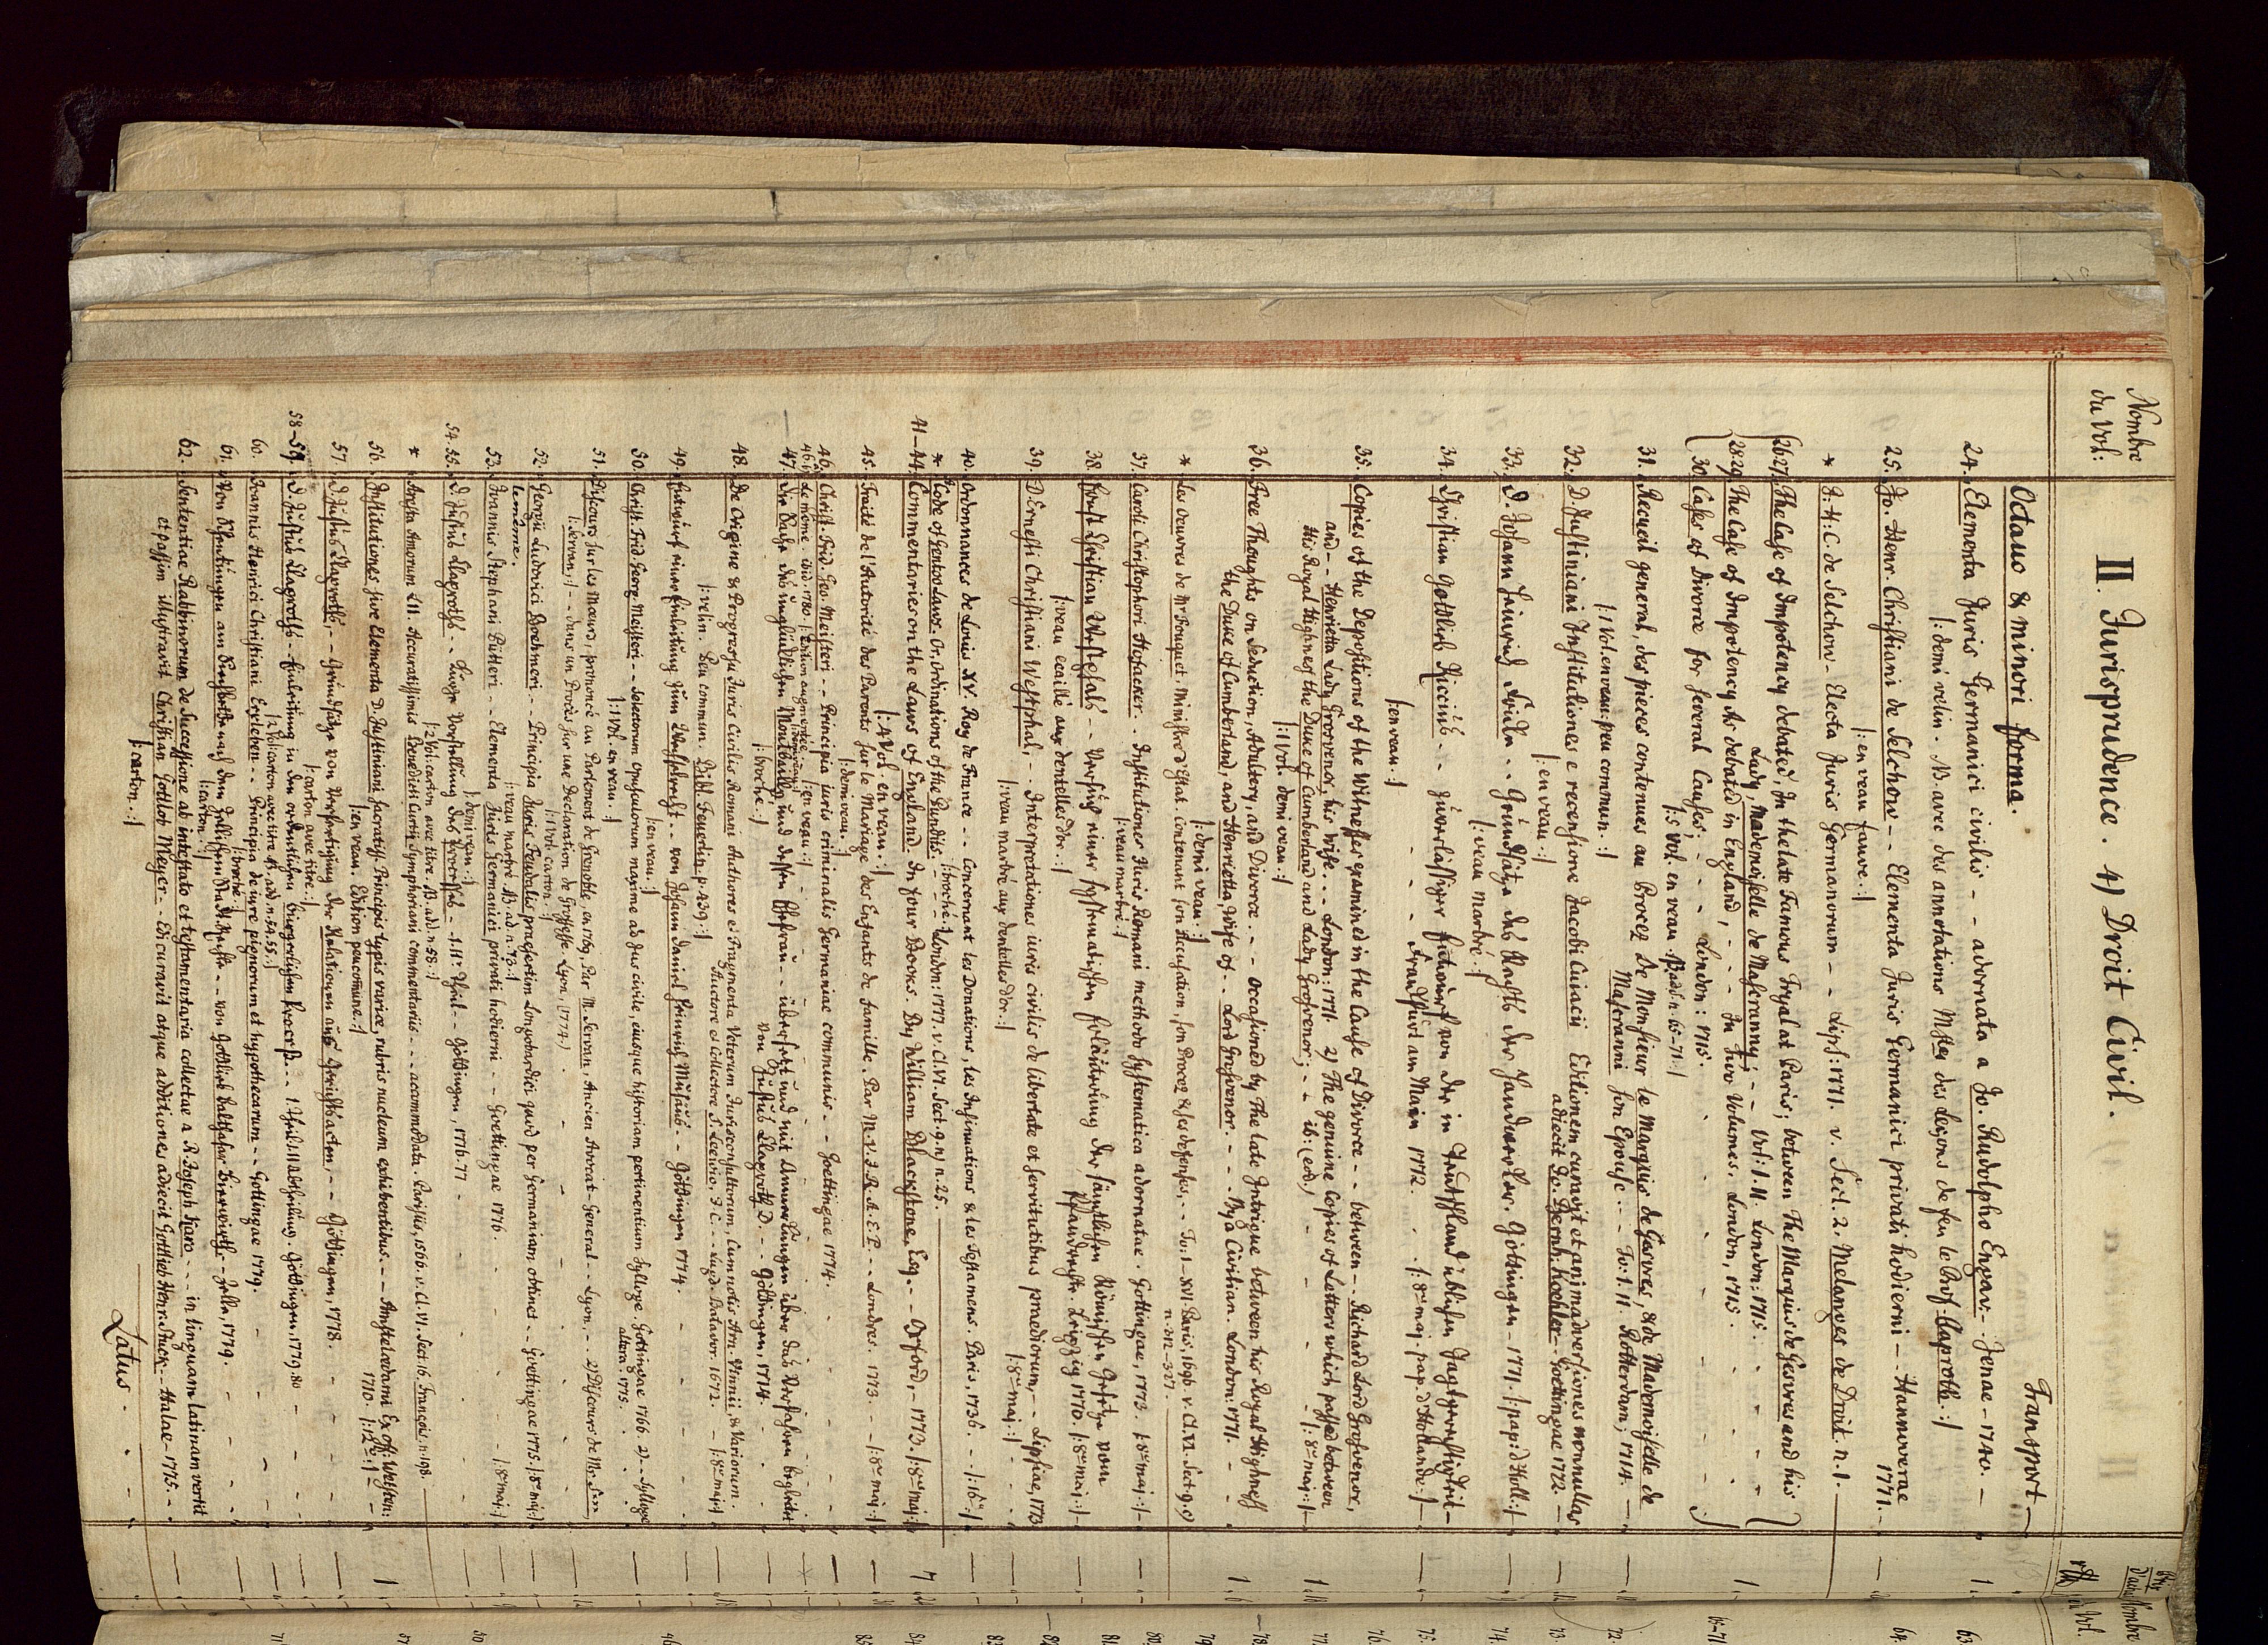 Nombre du vol:
II. Jurisprudence. 4) Droit Civil.
Transport —
Octavo & minori forma.
24. Elementa Juris Germanici civilis - - adornata a Jo. Rudolpho Engav - - Jenae - 1740. —
/: demi velin - NB avec des annotations Mstes des Leçons de feu le Prof. Claproth :/
25. Jo. Henr. Christiani de Selchow - - Elementa Juris Germanici privati hodierni - - Hannoverae 1771. -
/: en veau fauve :/
* J. H. C. de Selchow - Electa Juris Germanorum - - Lips: 1771. v. Sect. 2. Melanges de Droit. n. 1.
26.27. The Case of Impotency debated, In the late Famous Tryal at Paris; between The Marquis de Gesvres and his
Lady, Mademoiselle de Mascranny; - - Vol: I. II. London: 1715.
28.29. The Case of Impotency As debated in England, - - In Two Volumes. London, 1715.
30. Cases of Divorce for several Causes; - - London: 1715.
/: 5 Vol. en veau.
31. Recueil general, des pieces contenues au Procez De Monsieur le Marquis de Gesvres, & de Mademoiselle de
Mascranni son Epouse - - To: I. II Rotterdam; 1714. —
/: 1 Vol. en veau: peu commun :/
32. D. Justiniani Institutiones e recensione Jacobi Cuiacii Editionem curavit et animadversiones nonnullas
adiecit Jo. Bernh. Koehler - Goettingae 1772. —
/: en veau :/
33. D. Johann Heinrich Fricke - - Grundsätze des Rechts der Handwerker. Göttingen - 1771. /: pap: d'Holl: :/
/: veau marbré :/
34. Christian Gottlieb Riccius - - Zuverlässiger Entwurf von der in Teutschland üblichen Jagtgerechtigkeit -
- - Franckfurt am Main 1772. /: 8vo maj. pap. d'Hollande :/
/: en veau :/
35. Copies of the Depositions of the Witnesses examined in the Cause of Divorce - - between - - Richard Lord Grosvenor,
and - - Henrietta Lady Grosvenor, his wife - - London: 1771. 2) The genuine Copies of Letters which passed between
His Royal Highness the Duke of Cumberland and Lady Grosvenor; - - ib: (eod.) /: 8vo maj: :/
/: 1 Vol. demi veau :/
36. Free Thoughts on Seduction, Adultery, and Divorce - - occasioned by The late Intrigue between his Royal Highness
the Duke of Cumberland, and Henrietta, Wife of - - Lord Grosvenor. - - By a Civilian. London: 1771.
/: demi veau :/
* Les Oeuvres de Mr Fouquet Ministre d'Estat. Contenant son Accusation, son Procez & ses defenses, - - To: I - XVI Paris, 1696. v. Cl. VI. Sect. 9.
n. 312-327.
37. Caroli Christophori Hofacker - - Institutiones Juris Romani methodo systematica adornatae. Gottingae, 1773. /: 8vo maj: :/
/: veau marbré :/
38. Ernst Christian Westphal - - Versuch einer systematischen Erläuterung der sämtlichen Römischen Gesetze vom
Pfandrechte. Leipzig 1770. /: 8vo maj: :/
/: veau ecaillé aux dentelles d'or :/
39. D. Ernesti Christiani Westphal, - - Interpretationes iuris civilis de libertate et servitutibus praediorum, - - Lipsiae, 1773
/: 8vo maj: :/
/: veau marbré aux dentelles d'or :/
40. Ordonnances de Louis XV. Roy de France - - Concernant les Donations, les Insinuations & les Testamens. Paris, 1736. - - /: 16o :/
/: broché :/
* Code of Gentoo Laws. Or, Ordinations of the Pundits. - - London: 1777. v. Cl. VI. Sect. 9. n. 25.
41-44. Commentaries on the Laws of England. In four Books. By William Blackstone, Esq. - - Oxford, - 1773. /: 8vo maj: :/
/: 4 Vol. en veau :/
45. Traité de l'Autorité des Parents sur le Mariage des Enfants de famille. Par M. V. J. R. A. E. P. - - Londres. 1773. - - /: 8vo maj: :/
/: demi veau :/
46. Christ. Frid. Geo. Meisteri - - Principia iuris criminalis Germaniae communis - - Goettingae 1774.
46b. Le même. ibid. 1780. /: Edition augmentée :/ /: en veau :/
47. Die Sache des unglücklichen Montbailly und dessen Ehefrau - - übersetzt und mit Anmerkungen über das Verfahren begleitet
von Justus Claproth, D. - - Göttingen, 1774.
/: broché :/
48. De Origine & Progressu Juris Civilis Romani Authores et Fragmenta Veterum Jurisconsultorum, Cum notis Arn. Vinnii, & Variorum.
Auctore et Collectore S. Leewio, J. C. - - Lugd. Batavor. 1672. - - /: 8vo maj: :/
/: velin. Peu commun. Bibl. Feuerlin p. 439 :/
49. Entwurf einer Einleitung zum Wechselrecht - - von Johann Daniel Heinrich Musäus - - Göttingen 1774.
/: en veau :/
50. Christ. Frid. Georg. Meisteri - - Selectorum opusculorum maxime ad Jus civile, eiusque historiam pertinentium Sylloge. Gottingae 1766. 2) - - Sylloge
altera. 1775.
/: 1 Vol. en veau :/
51. Discours sur les Moeurs, prononcé au Parlement de Grenoble, en 1769. Par M. Servan, Ancien Avocat-General - - Lyon, - - 2) Discours de Mr. S**,
/: Servan :/ - - dans un Procès sur une Declaration de Grossesse. Lyon, (1774.)
/: 1 Vol. carton :/
52. Georgii Ludovici Boehmeri - - Principia Juris Feudalis praesertim Longobardici quod per Germaniam obtinet - - Goettingae 1775. /: 8vo maj: :/
/: veau marbré NB. ad. n. 73. :/
53. Joannis Stephani Pütteri - - Elementa Juris Germanici privati hodierni - - Goettingae 1776. - - /: 8vo maj: :/
/: demi veau :/
54.55. D. Justus Claproths - - Kurze Vorstellung des Processes - I. II. Theil - - Göttingen, 1776.77
/: 2 Vol: carton avec titre. NB. ad. n. 58. :/
* Aresta Amorum LII. Accuratissimis Benedicti Curtii Symphoriani commentariis - - accommodata. Parisiis, 1566. v. Cl. VI. Sect. 16. François. n. 198.
56. Institutiones sive Elementa D. Justiniani sacratiss. Principis typis varice, rubris nucleum exhibentibus. - - Amstelaedami Ex off: Wetsten:
1710. /: 12o :/
/: en veau. Edition peu commune :/
57. D. Justus Claproths, - - Grundsätze von Verfertigung der Relationen aus Gerichtsacten, - - Göttingen, 1778.
/: carton avec titre :/
58-59. D. Justus Claproth - - Einleitung in den ordentlichen bürgerlichen Process - - I. Theil. II Abtheilung. Göttingen, 1779.80
/: 2 Vol: carton avec titre NB. ad. n. 54.55. :/
60. Joannis Henrici Christiani Erxleben - - Principia de iure pignorum et hypothecarum - - Gottingae 1779.
/: broché :/
61. Von Schenkungen - - von Gottlieb Balthasar - - Zelle, 1779.
/: carton :/
62. Sententiae Rabbinorum de Successione ab intestato et testamentaria collectae a R. Joseph Karo - - in linguam latinam vertit
et passim illustravit Christian Gottlob Meyer - - Edi curavit atque additiones adiecit Gottlieb Henr. Stuck - - Halae - 1775.
/: carton :/
Latus